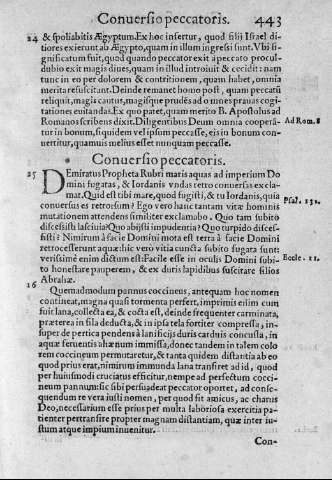 Conuersio peccatoris. 443
24 & spoliabitis Ægyptum. Ex hoc insertur, quod filij Israel di-
tiores exierunt ab Ægypto, quam in illum ingressi sunt. Vbi si-
gnificatum fuit, quod quando peccator exit a peccato procul
dubio exit magis diues, quam in illud introiuit & cecidit: nam
tunc in eo per dolorem & contritionem, quam habet, omnia
merita resuscitant. Deinde remanet homo post, quam peccatũ
reliquit, magis cautus, magisque prudẽs ad o nunes prauas cogi-
tationes euitandas. Ex quo patet, quam merito B. Apostolus ad
Romanos scribens dixit. Diligentibus Deum omnia cooperã- Ad Rom. 8
tur in bonum, si quidem vel ipsum peccasse, eis in bonum conu-
uertitur, quamuis melius esset nunquam peccasse.
Conuersio peccatoris.
25 DEmiratus Propheta Rubri maris aquas ad imperium Do
mini fugatas, & Iordanis vndas retro conuersas excla-
mat. Quid est tibi mare, quod fugisti, & tu Iordanis, quia
conuersus es retrorsum? Ego vero hanc tantam vitæ hominis Psal. 131.
mutationem attendens similiter exclamabo. Quo tam subitò
discessisti lasciuia? Quo abijsti impudentia? Quo turpido disces-
sisti? Nimirũ à facie Domini mota est terra à facie Domini
retrocesserunt aquæ: hic verò vitia cuncta subito fugata sunt:
verissimè enim dictum est: Facile esse in oculis Domini subi- Eccle. 11.
to honestare pauperem, & ex duris lapidibus suscitare filios
Abrahæ.
26 Quemadmodum pannus coccineus, antequam hoc nomen
contineat, magna quasi tormenta perfert, imprimis enim cum
fuit lana, collecta ea, & cocta est, deinde frequenter carminata,
præterea in fila deducta, & in ipsa tela fortiter compressa, in-
super de pertica pendens à lanificijs duris carduis concussa, in
aquæ feruentis ahænum immissa, donec tandem in talem colo
rem coccineum permutaretur, & tanta quidem distantia ab eo
quod prius erat, nimirum immunda lana transiret ad id, quod
per huiusmodi cruciatus efficitur, nempe ad perfectum cocci-
neum pannum: sic sibi persuadeat peccator oportet, ad conse-
quendum re vera iusti nomen, per quod sit amicus, ac charus
Deo, necessarium esse prius per multa laboriosa exercitia pa-
tienter pertransire propter magnam distantiam, quæ inter iu-
stum atque impium inuenitur.
Con-